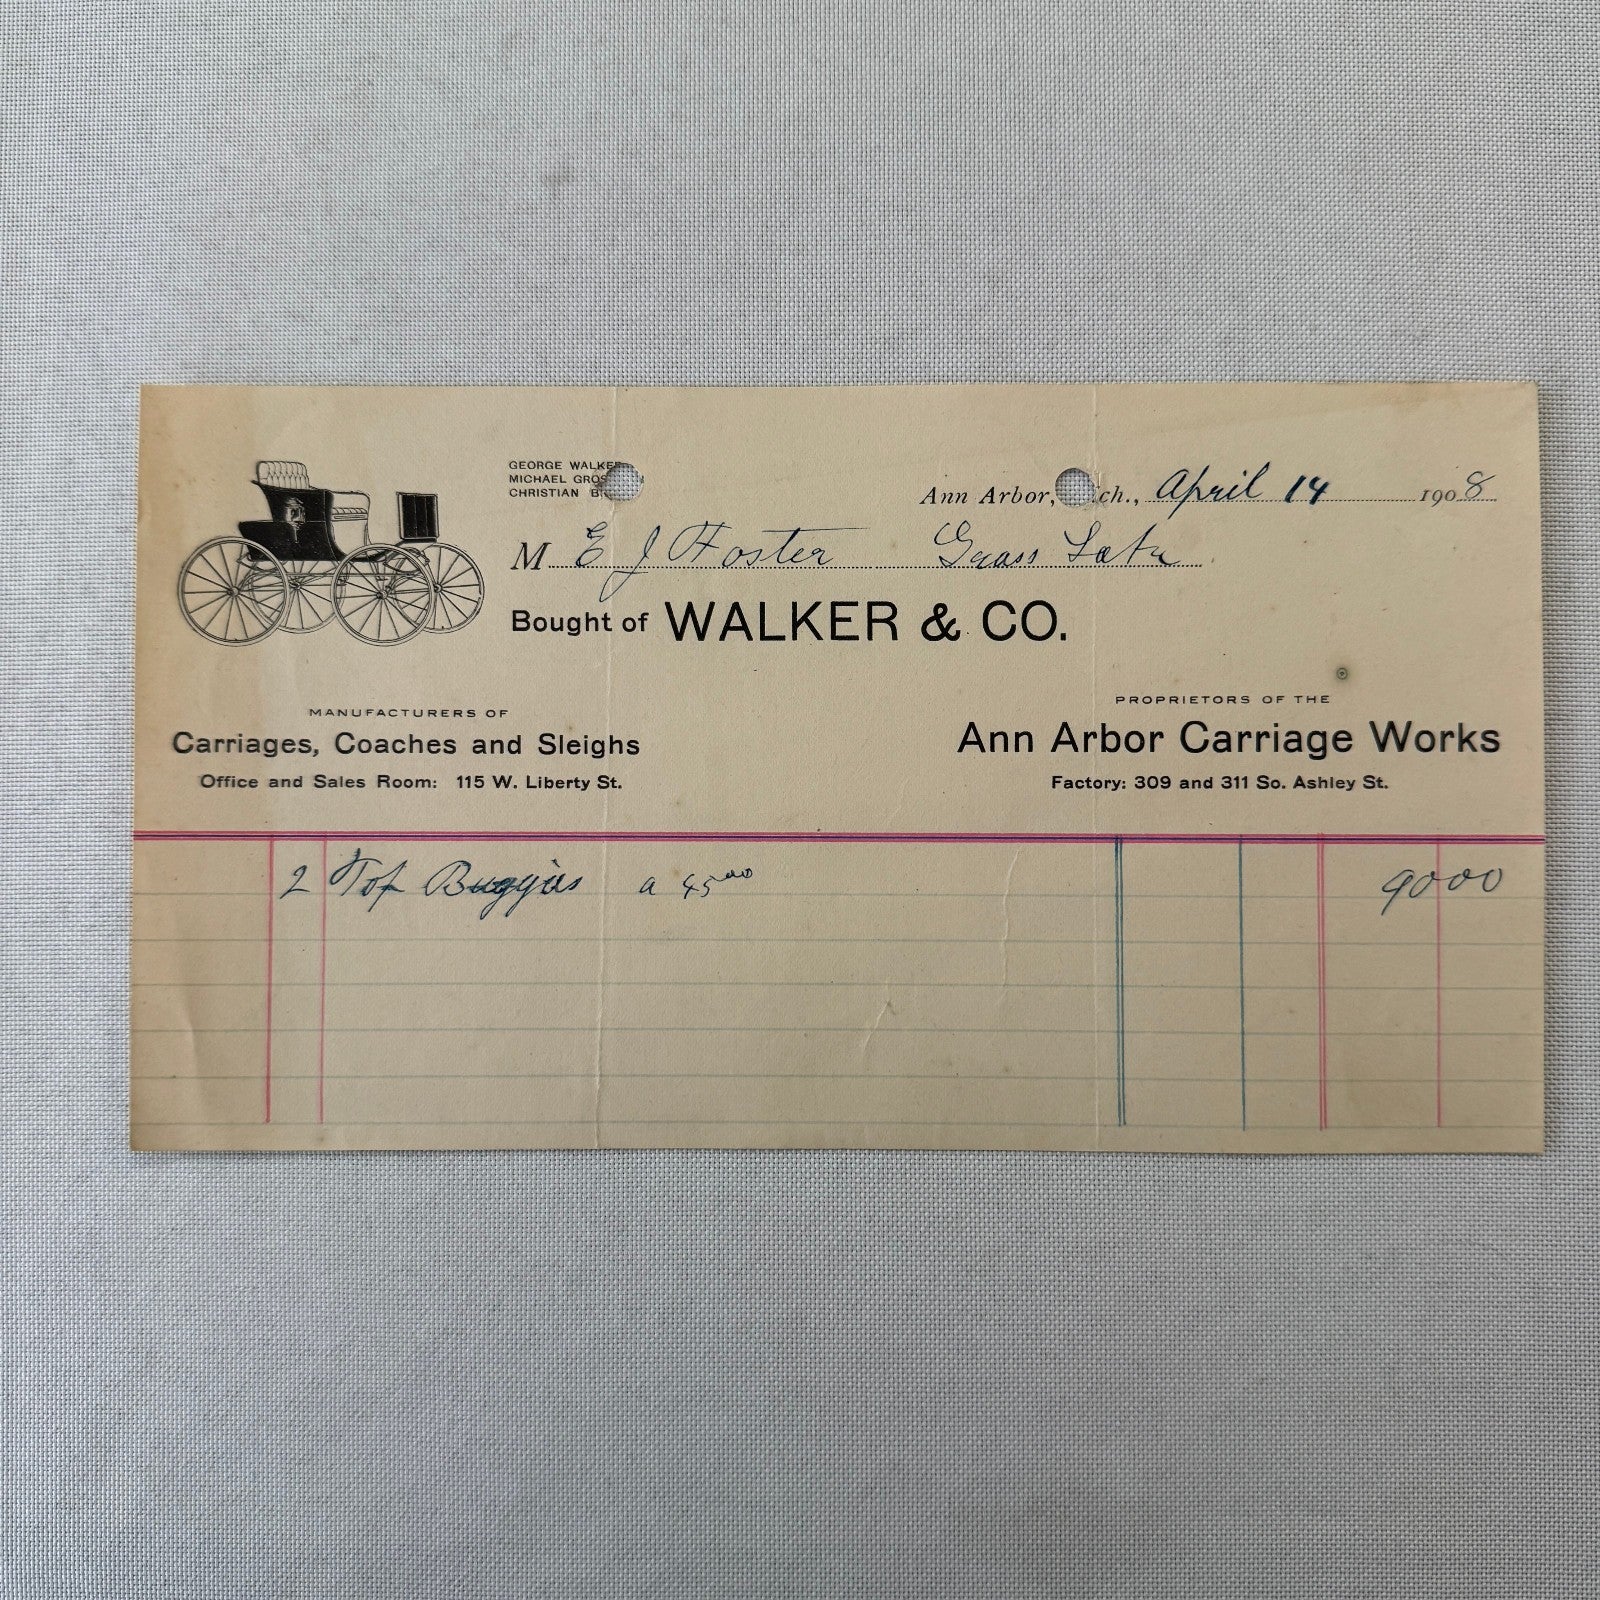 GEORGE WALKER
MICHAEL
CHRISTIAN
Ann Arbor, ch., April 14 1908
M E J Foster Grass Lake
Bought of WALKER & CO.
MANUFACTURERS OF
Carriages, Coaches and Sleighs
Office and Sales Room: 115 W. Liberty St.
PROPRIETORS OF THE
Ann Arbor Carriage Works
Factory: 309 and 311 So. Ashley St.
2 Top Buggies a 45 00 90 00